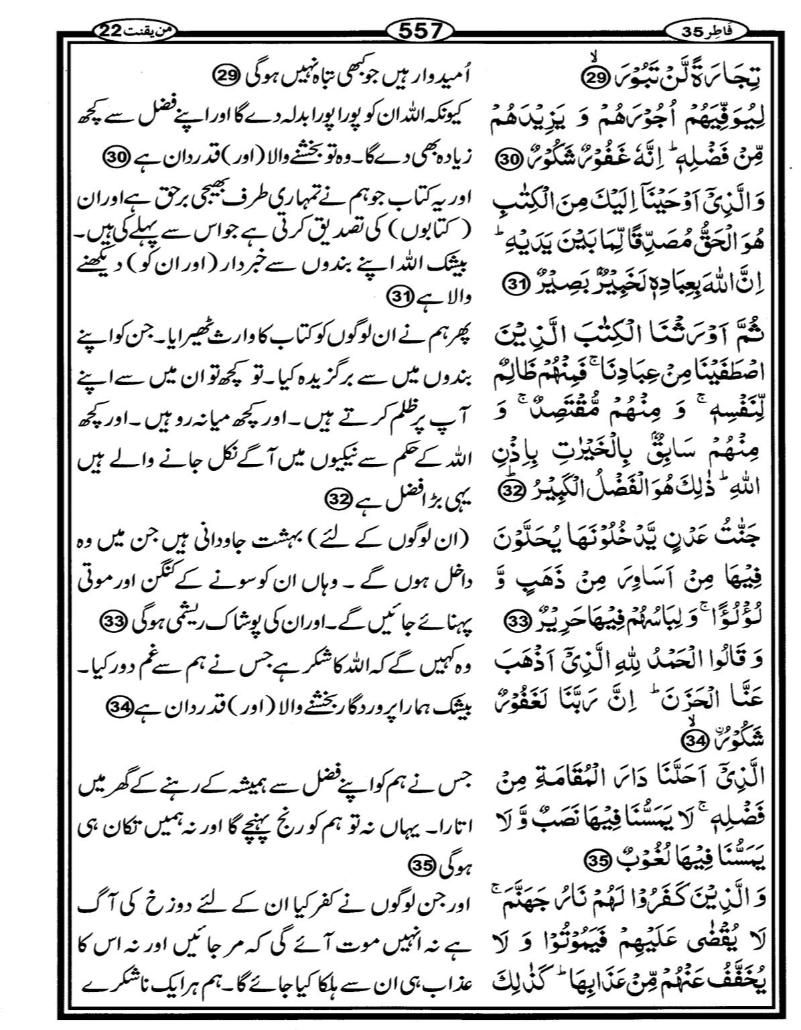 فَاطِر 35
557
من يقنت 22
تِجَارَةً لَّنْ تَبُوْرَ ﴿29﴾ۙ
لِيُوَفِّيَهُمْ اُجُوْرَهُمْ وَ يَزِيْدَهُمْ
مِّنْ فَضْلِهٖ ؕ اِنَّهٗ غَفُوْرٌ شَكُوْرٌ ﴿30﴾
وَالَّذِيْۤ اَوْحَيْنَاۤ اِلَيْكَ مِنَ الْكِتٰبِ
هُوَ الْحَقُّ مُصَدِّقًا لِّمَا بَيْنَ يَدَيْهِ ؕ
اِنَّ اللّٰهَ بِعِبَادِهٖ لَخَبِيْرٌۢ بَصِيْرٌ ﴿31﴾
ثُمَّ اَوْرَثْنَا الْكِتٰبَ الَّذِيْنَ
اصْطَفَيْنَا مِنْ عِبَادِنَا ۚ فَمِنْهُمْ ظَالِمٌ
لِّنَفْسِهٖ ۚ وَ مِنْهُمْ مُّقْتَصِدٌ ۚ وَ
مِنْهُمْ سَابِقٌۢ بِالْخَيْرٰتِ بِاِذْنِ
اللّٰهِ ؕ ذٰلِكَ هُوَ الْفَضْلُ الْكَبِيْرُ ﴿32﴾ؕ
جَنّٰتُ عَدْنٍ يَّدْخُلُوْنَهَا يُحَلَّوْنَ
فِيْهَا مِنْ اَسَاوِرَ مِنْ ذَهَبٍ وَّ
لُؤْلُؤًا ۚ وَ لِبَاسُهُمْ فِيْهَا حَرِيْرٌ ﴿33﴾
وَ قَالُوا الْحَمْدُ لِلّٰهِ الَّذِيْۤ اَذْهَبَ
عَنَّا الْحَزَنَ ؕ اِنَّ رَبَّنَا لَغَفُوْرٌ
شَكُوْرُۨ ﴿34﴾ۙ
الَّذِيْۤ اَحَلَّنَا دَارَ الْمُقَامَةِ مِنْ
فَضْلِهٖ ۚ لَا يَمَسُّنَا فِيْهَا نَصَبٌ وَّ لَا
يَمَسُّنَا فِيْهَا لُغُوْبٌ ﴿35﴾
وَ الَّذِيْنَ كَفَرُوْا لَهُمْ نَارُ جَهَنَّمَ ۚ
لَا يُقْضٰى عَلَيْهِمْ فَيَمُوْتُوْا وَ لَا
يُخَفَّفُ عَنْهُمْ مِّنْ عَذَابِهَا ؕ كَذٰلِكَ
اُمیدوار ہیں جو کبھی تباہ نہیں ہوگی ﴿29﴾
کیونکہ اللہ ان کو پورا پورا بدلہ دے گا اور اپنے فضل سے کچھ
زیادہ بھی دے گا۔ وہ تو بخشنے والا (اور) قدردان ہے ﴿30﴾
اور یہ کتاب جو ہم نے تمہاری طرف بھیجی برحق ہے اور ان
(کتابوں) کی تصدیق کرتی ہے جو اس سے پہلے کی ہیں۔
بیشک اللہ اپنے بندوں سے خبردار (اور ان کو) دیکھنے
والا ہے ﴿31﴾
پھر ہم نے ان لوگوں کو کتاب کا وارث ٹھیرایا۔ جن کو اپنے
بندوں میں سے برگزیدہ کیا۔ تو کچھ تو ان میں سے اپنے
آپ پر ظلم کرتے ہیں۔ اور کچھ میانہ رو ہیں۔ اور کچھ
اللہ کے حکم سے نیکیوں میں آگے نکل جانے والے ہیں
یہی بڑا فضل ہے ﴿32﴾
(ان لوگوں کے لئے) بہشت جاودانی ہیں جن میں وہ
داخل ہوں گے ۔ وہاں ان کو سونے کے کنگن اور موتی
پہنائے جائیں گے۔ اور ان کی پوشاک ریشمی ہوگی ﴿33﴾
وہ کہیں گے کہ اللہ کا شکر ہے جس نے ہم سے غم دور کیا۔
بیشک ہمارا پروردگار بخشنے والا (اور) قدردان ہے ﴿34﴾
جس نے ہم کو اپنے فضل سے ہمیشہ کے رہنے کے گھر میں
اتارا۔ یہاں نہ تو ہم کو رنج پہنچے گا اور نہ ہمیں تکان ہی
ہوگی ﴿35﴾
اور جن لوگوں نے کفر کیا ان کے لئے دوزخ کی آگ
ہے نہ انہیں موت آئے گی کہ مر جائیں اور نہ اس کا
عذاب ہی ان سے ہلکا کیا جائے گا۔ ہم ہر ایک ناشکرے